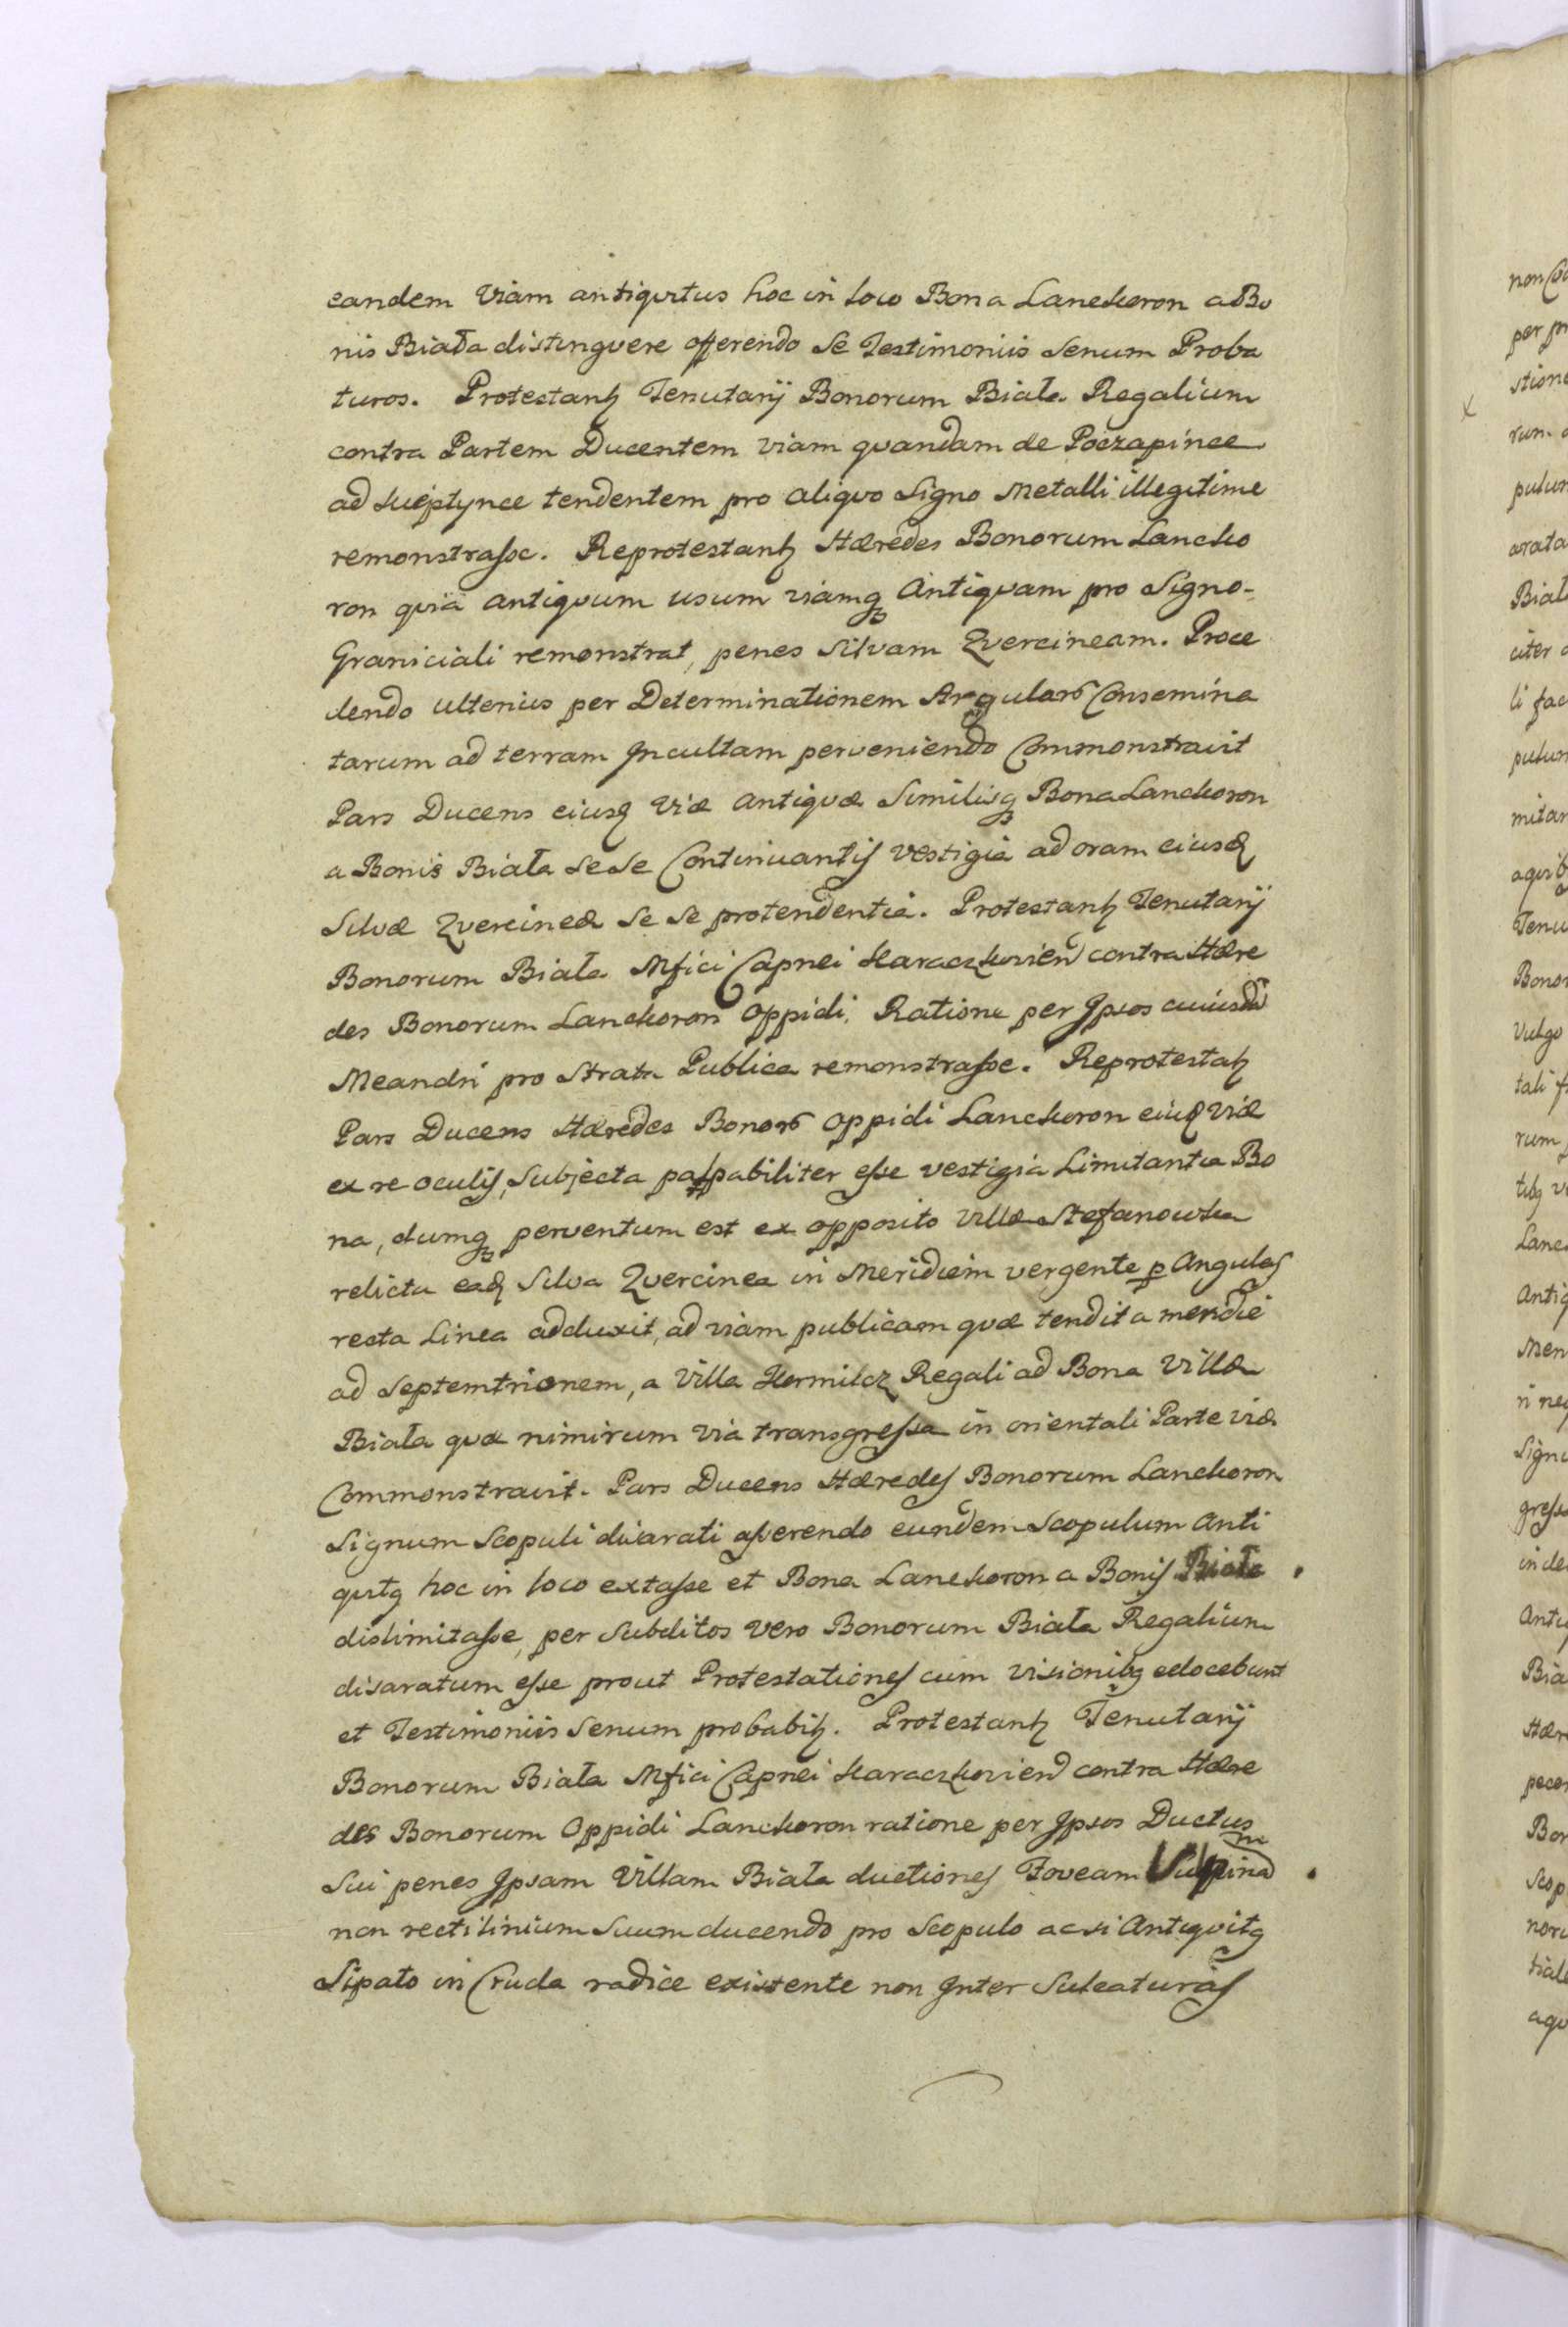 eandem Viam antiqvitus hoc in loco Bona Lanckoron a Bo
nis Biała distingvere offerendo se Testimoniis Senum Proba
turos. Protestantꝫ Tenutarij Bonorum Biała Regalium
contra Partem Ducentem viam qvandam de Poczapince
ad tendentem pro aliqvo Signo Metalli illegitime
remonstraſse. Reprotestantꝫ Hæredes Bonorum Lancko
ron qvia antiqvum usum viamqꝫ Antiqvam pro Signo-
Graniciali remonstrat, penes Silvam Qvercineam. Proce
dendo ulterius per Determinationem Consemina
tarum ad terram Incultam perveniendo Commonstravit
Pars Ducens eiusꝗ Viæ antiqvæ Similisqꝫ Bona Lanckoron
a Bonis Biała Sese Continuantis vestigia ad oram eiusꝗ
Silvæ Qvercineæ Se se protendentia. Protestantꝫ Tenutarij
Bonorum Biała Mfici Capnei Karaczkovien contra Hære
des Bonorum Lanckoron Oppidi, Ratione per Ipsos cuiusda
Meandri pro Strata Publica remonstraſse. Reprotestatꝫ
Pars Ducens Hæredes Bonorꝝ Oppidi Lanckoron eiusꝗ viæ
ex re oculis, Subjecta palpabiliter eſse vestigia Limitantia Bo
na, dumqꝫ perventum est ex opposito Villæ Stefanowka
relicta eaꝗ Silva Qvercinea in Meridiem vergente ꝑ Angulos
recta Linea adduxit, ad viam publicam quæ tendit a meridie
ad Septemtrionem, a Villa Hormilcz Regali ad Bona Villæ
Biała quæ nimirum via transgreſsa in orientali Parte viæ
Commonstravit. Pars Ducens Hæredes Bonorum Lanckoron
Signum Scopuli disarati aſserendo eundem Scopulum Anti
qvitꝫ hoc in loco extaſse et Bona Lanckoron a Bonis Biała
dislimitaſse, per Subditos vero Bonorum Biała Regalium
disaratum eſse prout Protestationes cum visionibꝫ edocebunt
et Testimoniis Senum probabitꝫ. Protestantꝫ Tenutarij
Bonorum Biała Mfici Capnei Karaczkovien contra Hære
des Bonorum Oppidi Lanckoron ratione per Ipsos Ductus
Sui penes Ipsam Villam Biała ductiones Foveam Vulpinam
non rectilinium Suum ducendo pro Scopulo acsi Antiqvitꝫ
Sipato in Cruda radice existente non Inter Sulcaturas